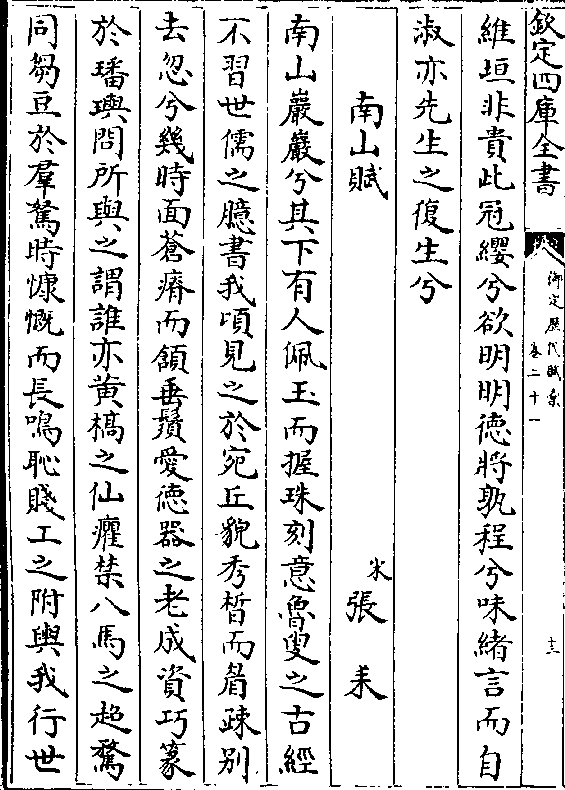 欽定四庫全書
御定歷代賦彙
卷二十一
十三
維垣非貴此冠纓兮欲明明德將孰程兮味緒言而自
淑亦先生之復生兮
南山賦
宋張耒
南山巖巖兮其下有人佩玉而握珠刻意魯叟之古經
不習世儒之臆書我頃見之於宛丘貌秀晳而眉疎別
去忽兮幾時面蒼瘠而頷垂鬚愛德器之老成資巧篆
於璠璵問所與之謂誰亦黄槁之仙癯禁八馬之超騖
同芻豆於羣駑時慷慨而長鳴恥賤工之附輿我行世